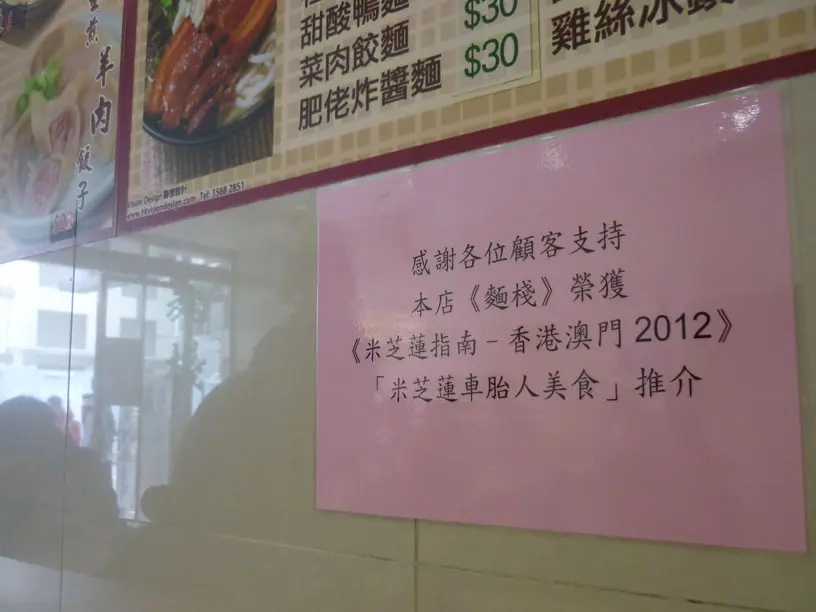 生煎羊肉餃子
甜酸鴨麵
$30
菜肉餃麵
$30
肥佬炸醬麵
Vision Design
www.hkvisiondesign.com Tel: 3568 2851
感謝各位顧客支持
本店《麵棧》榮獲
《米芝蓮指南–香港澳門 2012》
「米芝蓮車胎人美食」推介